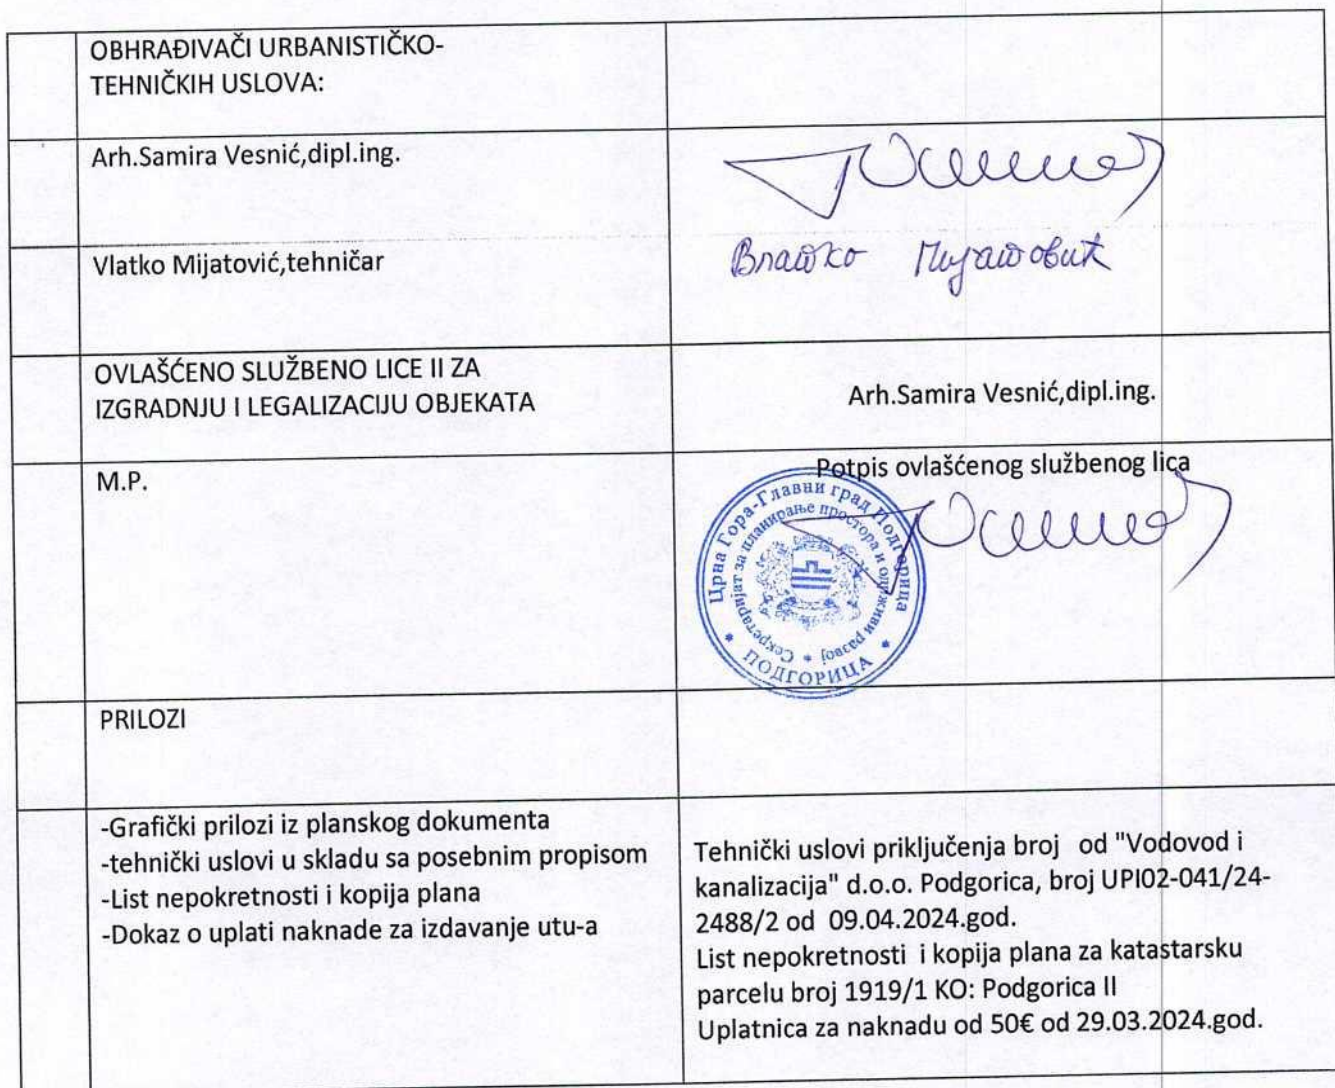 OBHRAĐIVAČI URBANISTIČKO-
TEHNIČKIH USLOVA:
Arh.Samira Vesnić,dipl.ing.
Vlatko Mijatović,tehničar
Влатко Мијатовић
OVLAŠĆENO SLUŽBENO LICE II ZA
IZGRADNJU I LEGALIZACIJU OBJEKATA
Arh.Samira Vesnić,dipl.ing.
M.P.
Potpis ovlašćenog službenog lica
Црна Гора-Главни град Подгорица
Секретаријат за планирање простора и одрживи развој
ПОДГОРИЦА
PRILOZI
-Grafički prilozi iz planskog dokumenta
-tehnički uslovi u skladu sa posebnim propisom
-List nepokretnosti i kopija plana
-Dokaz o uplati naknade za izdavanje utu-a
Tehnički uslovi priključenja broj od "Vodovod i
kanalizacija" d.o.o. Podgorica, broj UPI02-041/24-
2488/2 od 09.04.2024.god.
List nepokretnosti i kopija plana za katastarsku
parcelu broj 1919/1 KO: Podgorica II
Uplatnica za naknadu od 50€ od 29.03.2024.god.